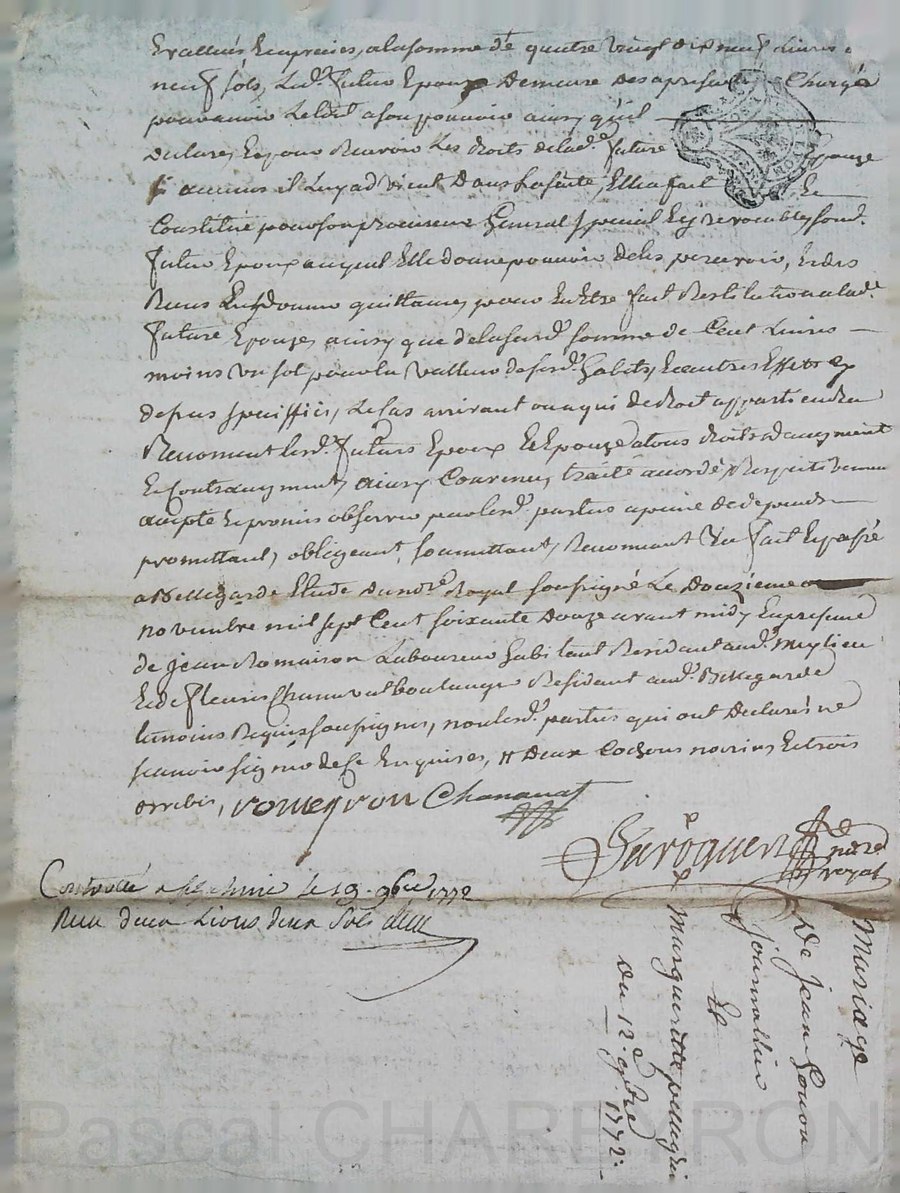 Evallués En principes, a la somme de quatre vingt dix neuf Livres
neuf sols, Led.t futur Epoux Demeure des a present Chargé
pour avoir Le tout a son pouvoir ainsy qu'il
declare, Et pour Recevoir Les droits de lad.e future Epouze
il Luy ad vient Dans La suite, Elle a fait Et
Constitué pour son procureur General special Et irrevocable sond.
futur Epoux auquel Elle donne pouvoir de les percevoir, Et des
Recus En donner quittances, pour En Etre fait Restitution a lad.e
future Epouze, ainsy que de la susd.e somme de Cent Livres
moins un sol pour la valleur de sesd. habits, Et autres Effets
de sus speciffiés, Le Cas arrivant ou a qui de droit appartiendra
Renoncent lesd. futurs Epoux Et Epouze a tous droits d'augment
Et Contraugment, ainsy Convenu, traité accordé Respectivement
accepté Et promis observer par lesd. parties a peine de depends
promettant, obligeant, soumettant, Renonceant &a fait Et passé
a Bellegarde Etude du no.re Royal soussigné Le Douzieme
novembre mil sept Cent soixante Douze avant midy En presence
de Jean Romaison Laboureur habitant Residant aud. Meylieu
Et de fleuris Chanavat boulanger Residant aud. Bellegarde
temoins Requis soussignés, non lesd. parties qui ont Declarés ne
scavoir signer de ce Enquises, # Deux Cochons nourins Et trois
brebis, romeyron Chanavat
no.re royal
Controllé a le 19. 9bre 1772
Recu deux Livres deux sols
Mariage
De Jean
Journallier
Et
de Margueritte
du 12. 9bre 1772.
Pascal CHAREYRON